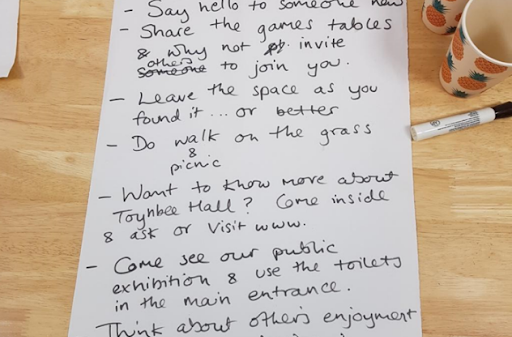 - Say hello to someone new
- Share the games tables
& why not invite
others
someone to join you.
- Leave the space as you
found it ... or better
- Do walk on the grass
&
picnic
- Want to know more about
Toynbee Hall? Come inside
& ask or visit www.
- Come see our public
exhibition & use the toilets
in the main entrance.
Think about others enjoyment